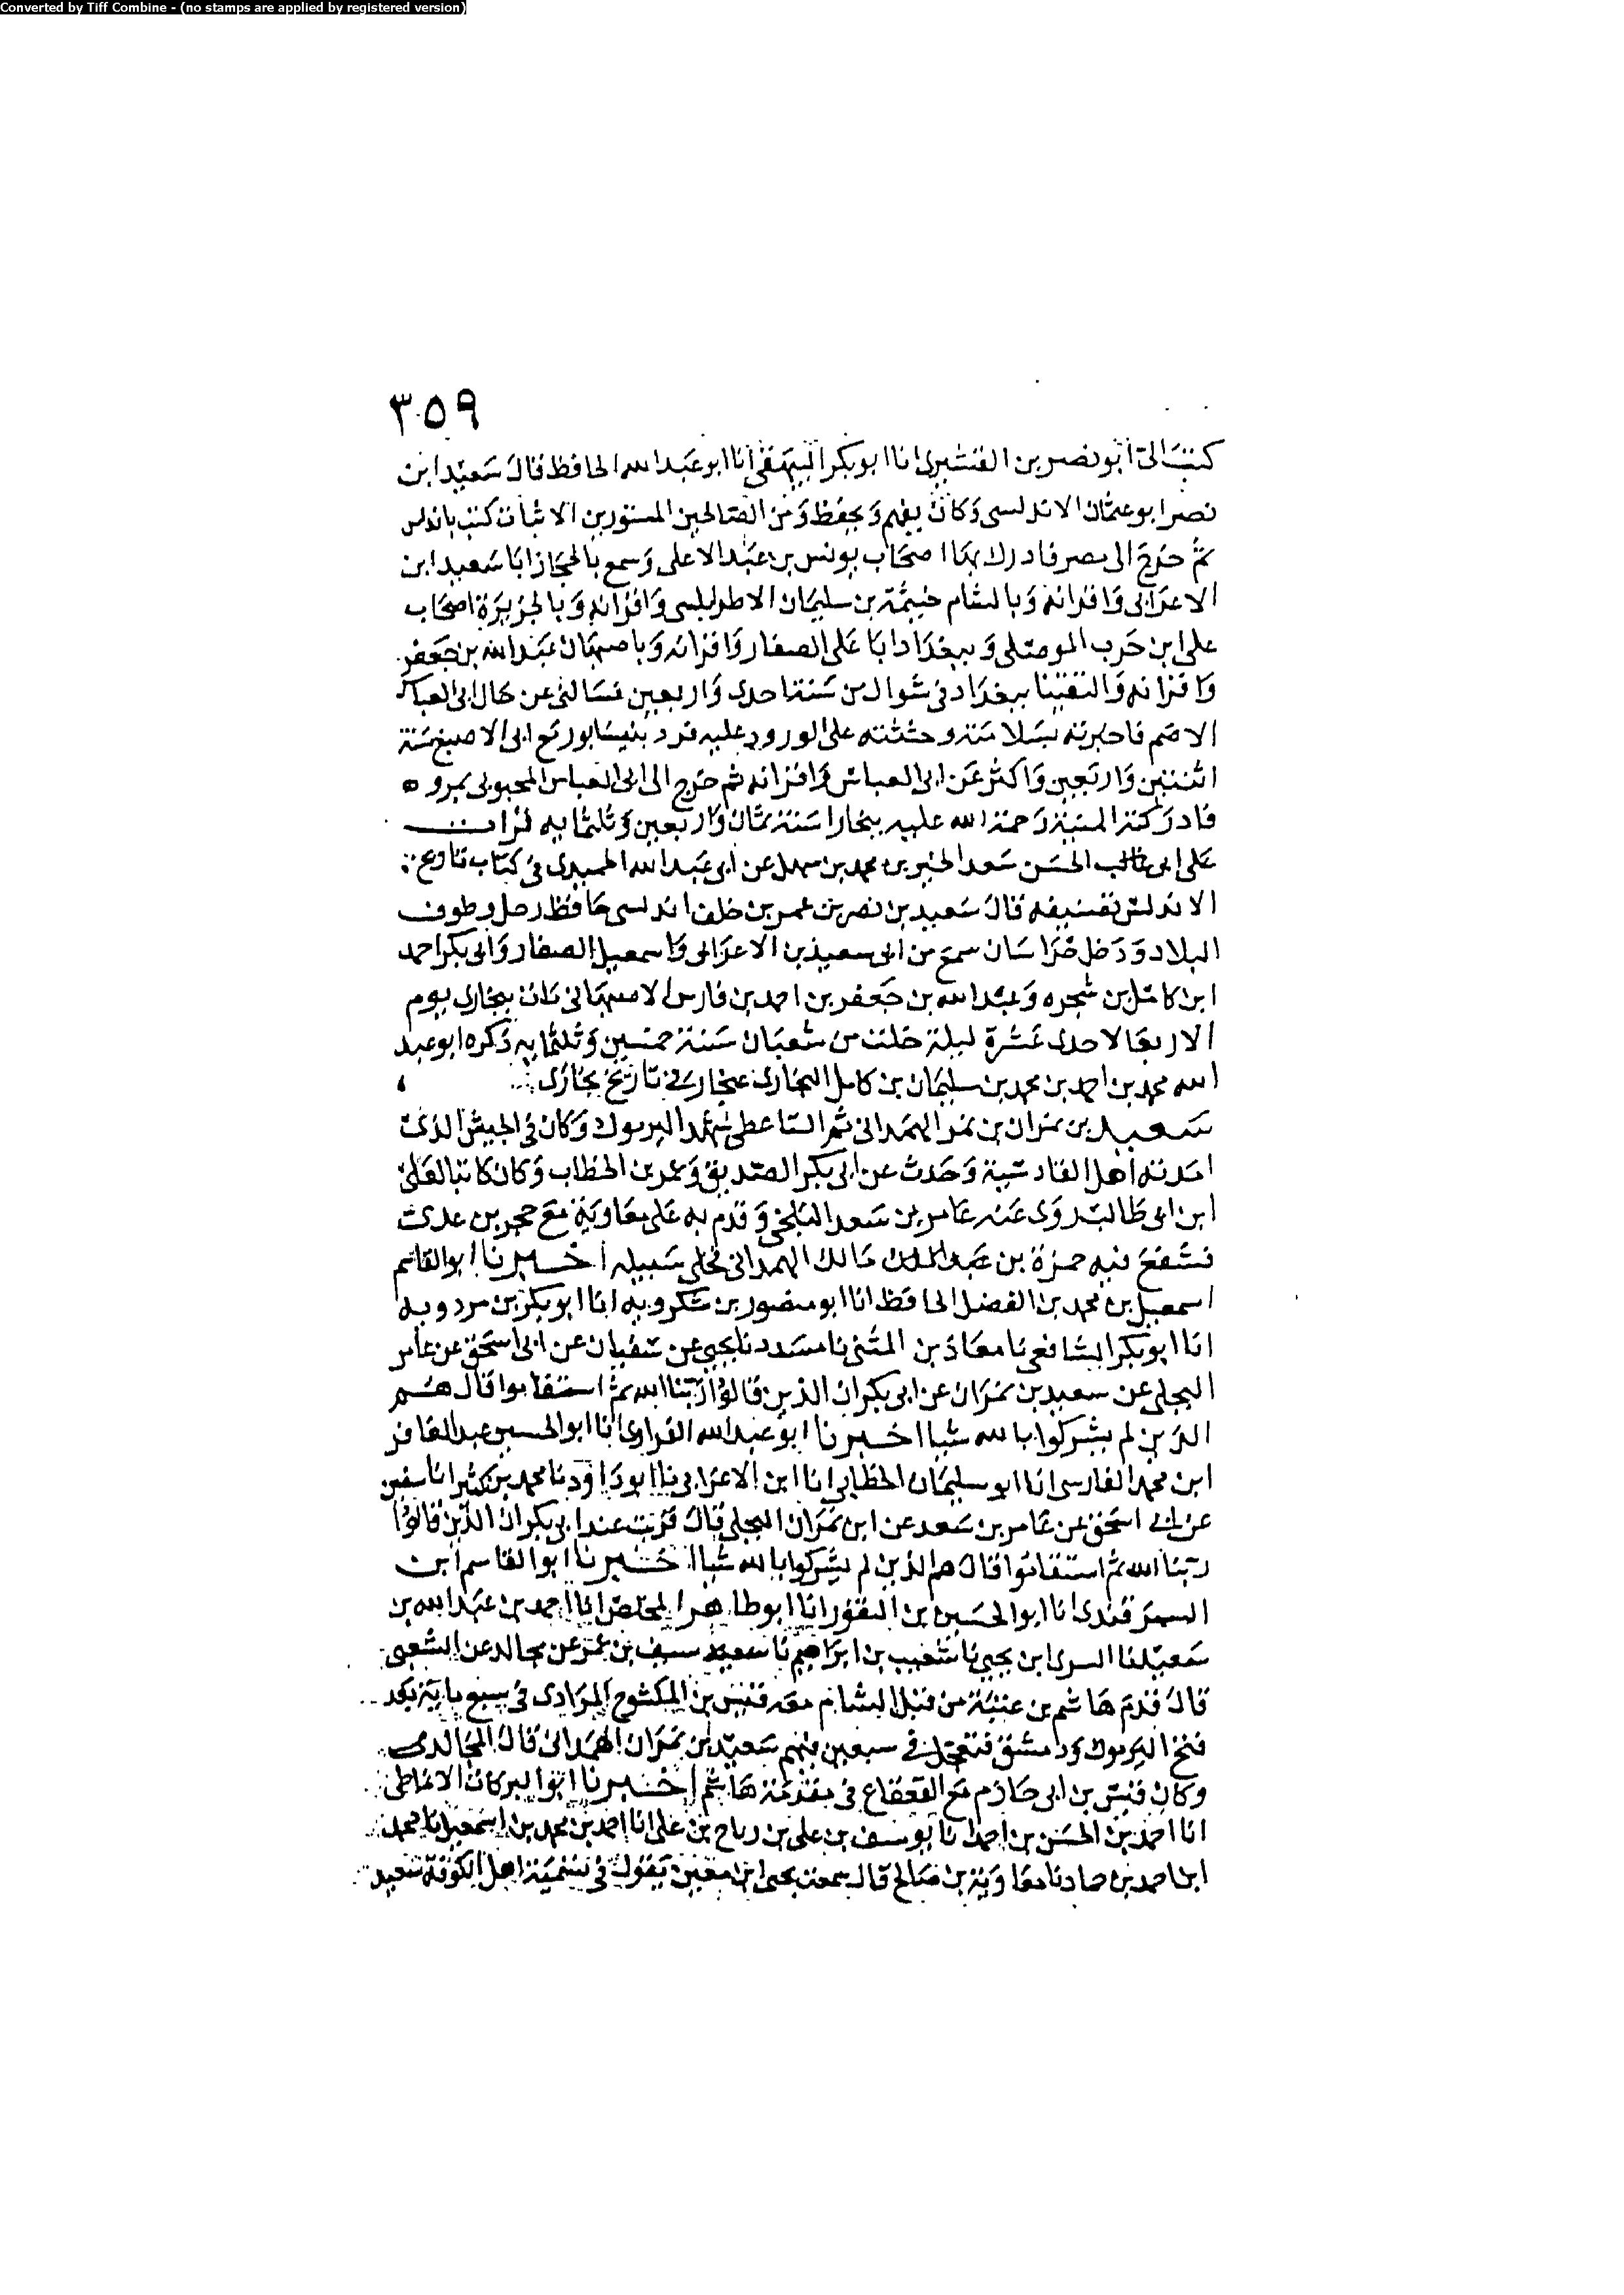 Converted by Tiff Combine - (no stamps are applied by registered version)
٣٥٩
كتب الى ابو نصر بن القشيرى انا ابو بكر البيهقى انا ابو عبد الله الحافظ قال سعيد ابن
نصر ابو عثمان الاندلسى وكان يفهم ويحفظ ومن الصالحين المستورين الاثبات كتب باندلس
ثم خرج الى مصر فادرك بها اصحاب يونس بن عبد الاعلى وسمع بالحجاز ابا سعيد ابن
الاعرابى واقرانه وبالشام خيثمة بن سليمان الاطرابلسى واقرانه وبالجزيرة اصحاب
على ابن حرب الموصلى وببغداد ابا على الصفار واقرانه وباصبهان عبد الله بن جعفر
واقرانه والتقينا ببغداد فى شوال من سنة احدى واربعين فسالنى عن حال ابى العباس
الاصم فاخبرته بسلامته وحثثته على الورود عليه فرد بنيسابور مع ابى الاصبغ سنة
اثنتين واربعين واكثر عن ابى العباس واقرانه ثم خرج الى ابى العباس المحبوبى بمرو
فادركته المنية رحمة الله عليه ببخارا سنة ثمان واربعين وثلثمايه قرات
على ابى غالب الحسن سعد الخير بن محمد بن سهل عن ابى عبد الله الحميدى فى كتاب تاريخ
الاندلس تصنيفه قال سعيد بن نصر بن عمر بن خلف اندلسى حافظ رحل وطوف
البلاد ودخل خراسان سمع من ابى سعيد بن الاعرابى واسمعيل الصفار وابى بكر احمد
ابن كامل بن شجره وعبد الله بن جعفر بن احمد بن فارس الاصبهانى مات ببخارى يوم
الاربعا لاحدى عشرة ليلة خلت من شعبان سنة خمسين وثلثمايه ذكره ابو عبد
الله محمد بن احمد بن محمد بن سليمان بن كامل البخارى غنجار فى تاريخ بخارى
سعيد بن نمران بن نمر الهمدانى ثم الناعطى شهد اليرموك وكان فى الجيش الذى
امد به اهل القادسية وحدث عن ابى بكر الصديق وعمر بن الخطاب وكان كاتبا لعلى
ابن ابى طالب روى عنه عامر بن سعد البجلى وقدم به على معاوية مع حجر بن عدى
فشفع فيه حمزة بن مالك الهمدانى فخلى سبيله اخبرنا ابو القاسم
اسمعيل بن محمد بن الفضل الحافظ انا ابو منصور بن شكرويه انا ابو بكر بن مردويه
انا ابو بكر الشافعى نا معاذ بن المثنى نا مسدد نا يحيى عن سفيان عن ابى اسحق عن عامر
البجلى عن سعيد بن نمران عن ابى بكر ان الذين قالوا ربنا الله ثم استقاموا قال هم
الذين لم يشركوا بالله شيا اخبرنا ابو عبد الله الفراوى انا ابو الحسين عبد الغافر
ابن محمد الفارسى انا ابو سليمان الخطابى انا ابن الاعرابى نا ابو داود نا محمد بن كثير انا سفين
عن ابى اسحق عن عامر بن سعد عن ابن نمران البجلى قال قريت عند ابى بكر ان الذين قالوا
ربنا الله ثم استقاموا قال هم الذين لم يشركوا بالله شيا اخبرنا ابو القاسم ابن
السمرقندى انا ابو الحسين بن النقور انا ابو طاهر المخلص انا احمد بن عبد الله بن
سعيد نا السرى ابن يحيى نا شعيب بن ابراهيم نا سيف بن عمر عن مجالد عن الشعبى
قال قدم هاشم بن عتبة من قبل الشام معه قيس بن المكشوح المرادى فى سبع ماية بعد
فتح اليرموك ودمشق فتعجل فى سبعين فيهم سعيد بن نمران الهمدانى قال المجالدى
وكان قيس بن ابى حازم مع القعقاع فى مقدمة هاشم اخبرنا ابو البركات الانماطى
انا احمد بن الحسن بن احمد انا يوسف بن على بن رباح بن على انا احمد بن محمد بن اسمعيل نا محمد
ابن احمد بن حماد نا معاوية بن صالح قال سمعت يحيى ابن معين يقول فى تسمية اهل الكوفة سعيد